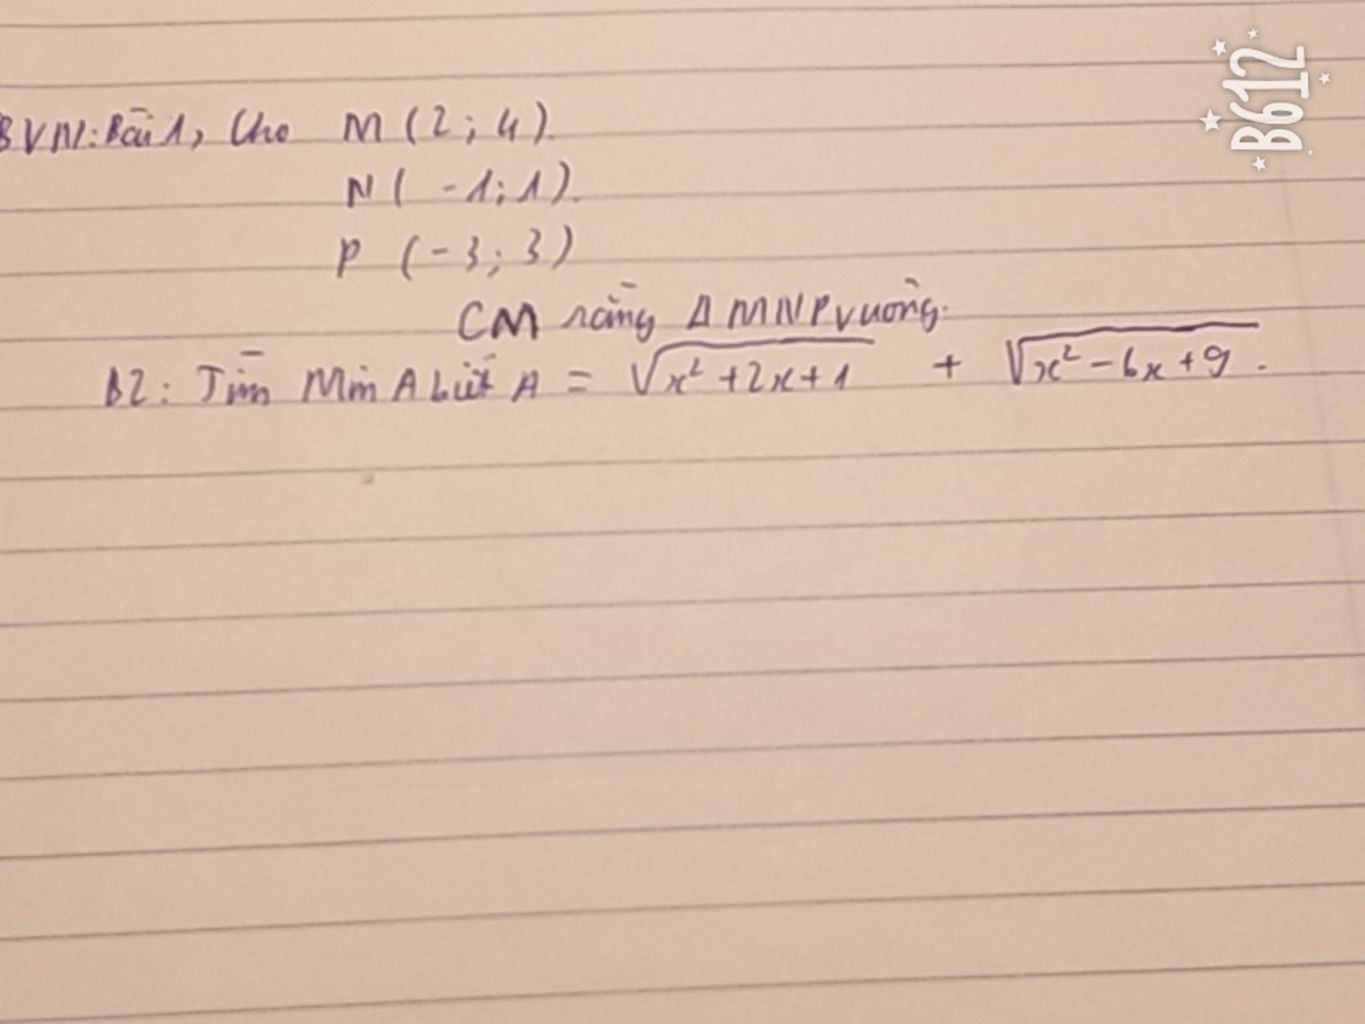 BVN: Bài 1, Cho M (2; 4).
N ( -1; 1).
P (-3; 3)
CM rằng Δ MNP vuông.
B2: Tìm Min A biết A = √(x² + 2x + 1) + √(x² - 6x + 9).
B612